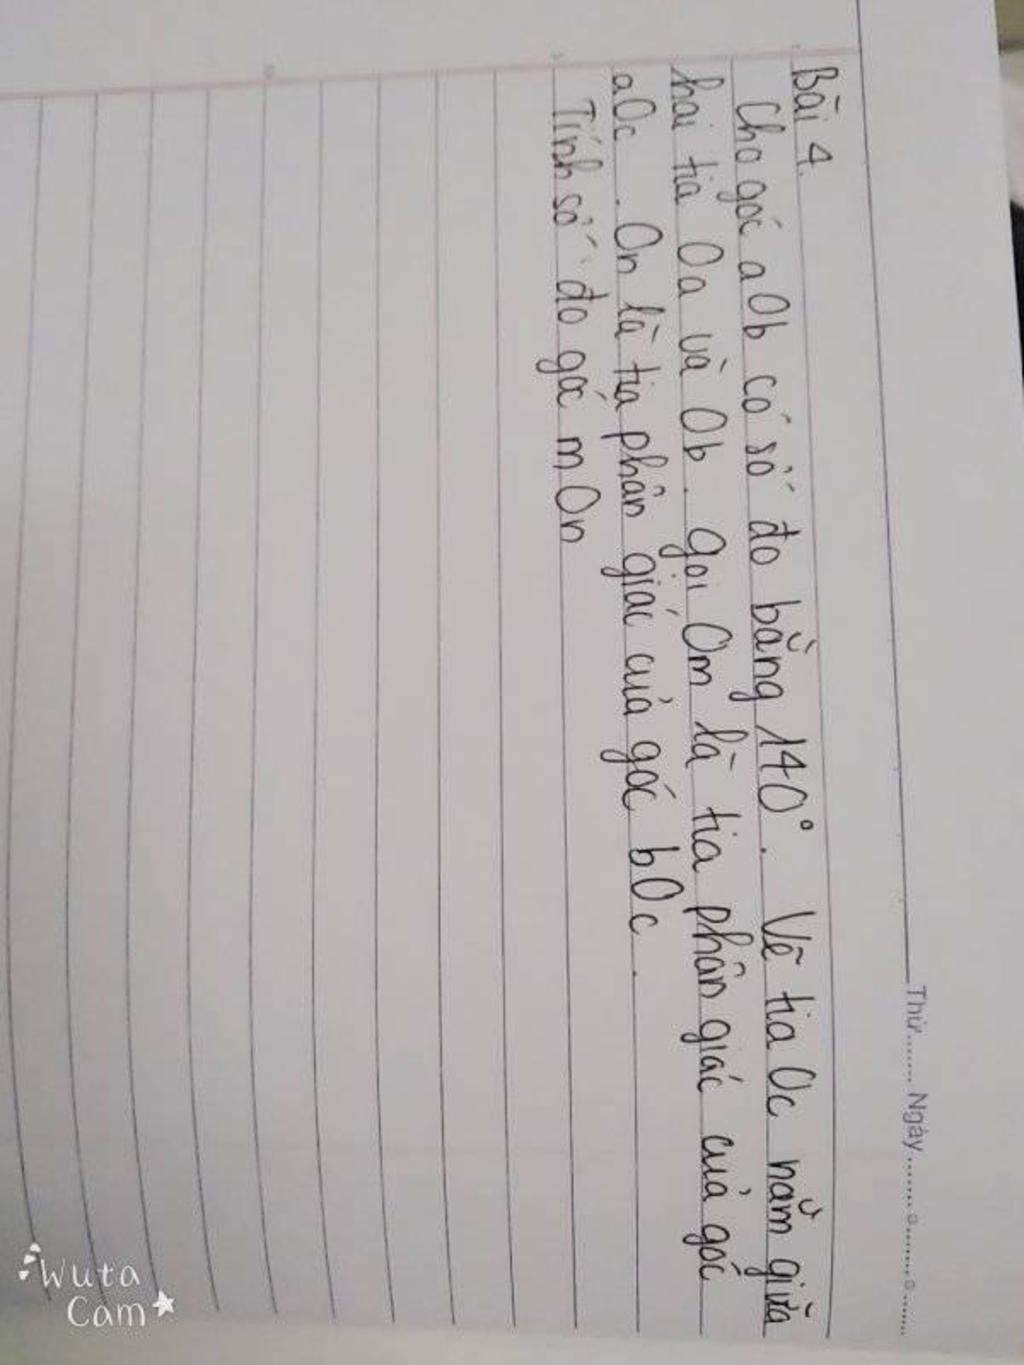 Thứ...... Ngày........
Bài 4.
Cho góc aOb có số đo bằng 140°. Vẽ tia Oc nằm giữa
hai tia Oa và Ob. Gọi Om là tia phân giác của góc
aOc. On là tia phân giác của góc bOc.
Tính số đo góc mOn
Wuta
Cam